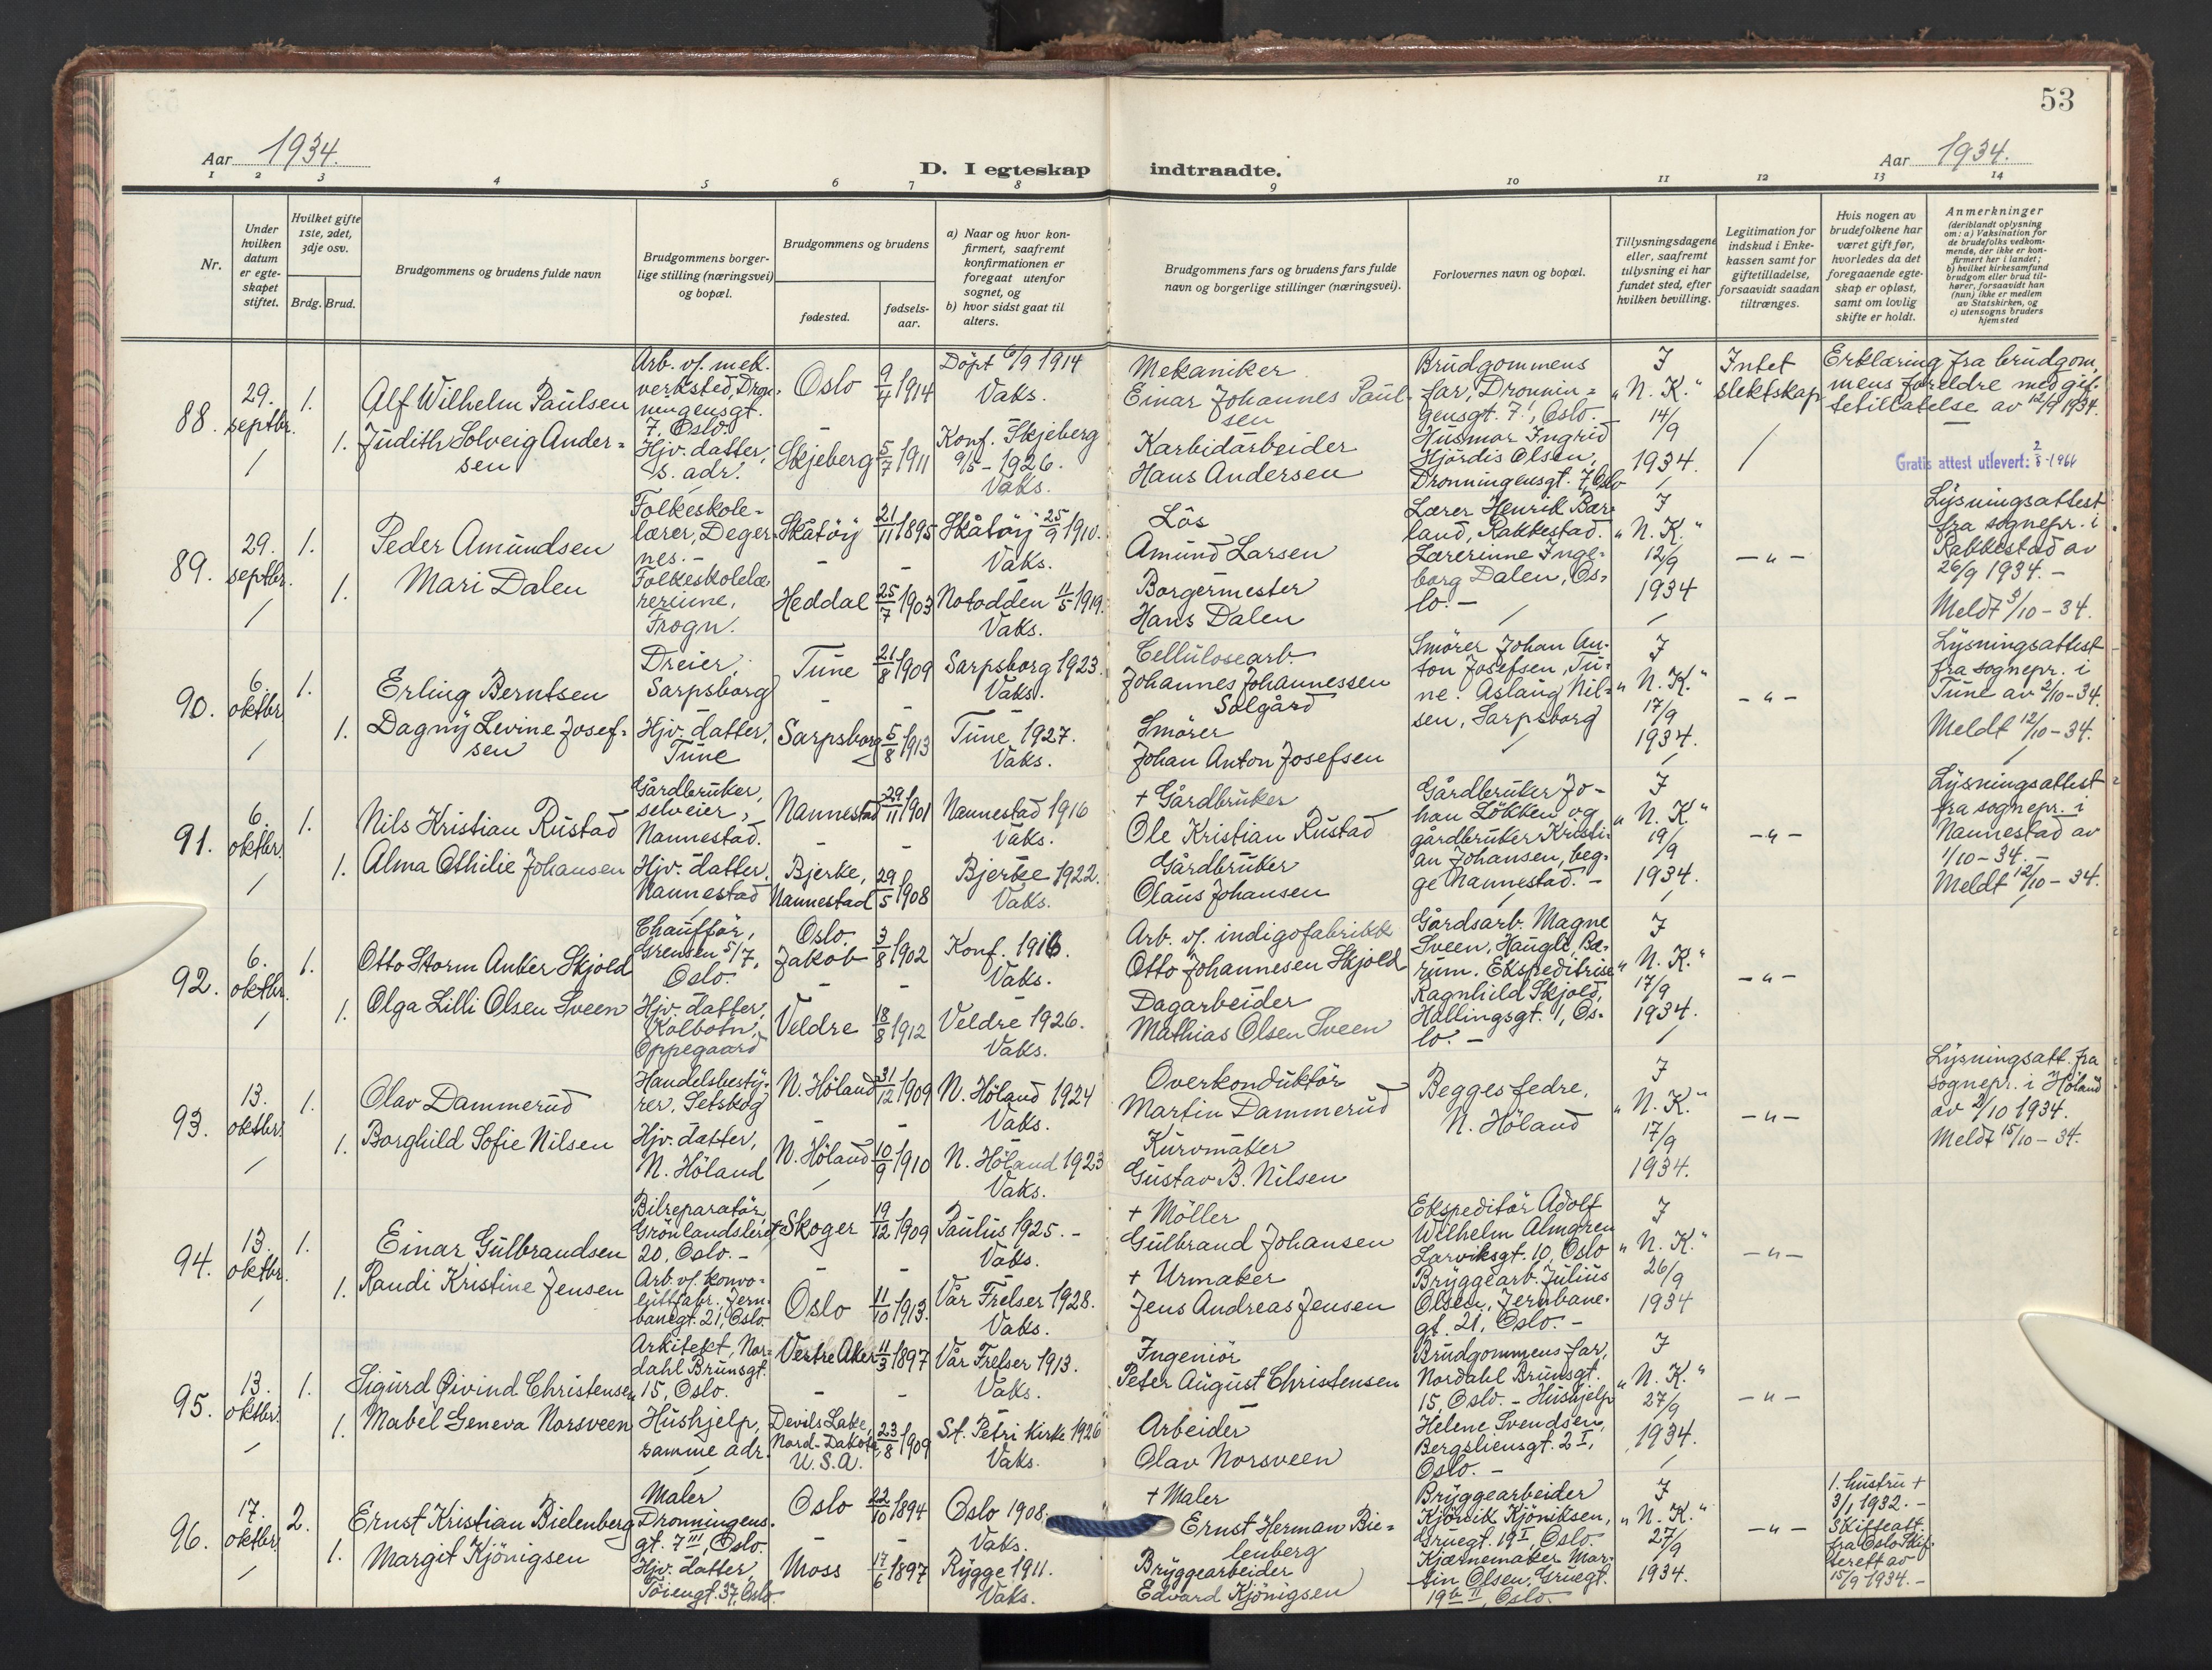 53
Aar 1934.
D. I egteskap indtraadte.
Aar 1934.
1 2 3 4 5 6 7 8 9 10 11 12 13 14
Nr.
Under
hvilken
datum
er egte-
skapet
stiftet.
Hvilket gifte
1ste, 2det,
3dje osv.
Brdg. Brud.
Brudgommens og brudens fulde navn
Brudgommens borger-
lige stilling (næringsvei)
og bopæl.
Brudgommens og brudens
fødested.
fødsels-
aar.
a) Naar og hvor kon-
firmert, saafremt
konfirmationen er
foregaat utenfor
sognet, og
b) hvor sidst gaat til
alters.
Brudgommens fars og brudens fars fulde
navn og borgerlige stillinger (næringsvei).
Forlovernes navn og bopæl.
Tillysningsdagene
eller, saafremt
tillysning ei har
fundet sted, efter
hvilken bevilling.
Legitimation for
indskud i Enke-
kassen samt for
giftetilladelse,
forsaavidt saadan
tiltrænges.
Hvis nogen av
brudefolkene har
været gift før,
hvorledes da det
foregaaende egte-
skap er opløst,
samt om lovlig
skifte er holdt.
Anmerkninger
(deriblandt oplysning
om: a) Vaksination for
de brudefolks vedkom-
mende, der ikke er kon-
firmert her i landet;
b) hvilket kirkesamfund
brudgom eller brud til-
hører, forsaavidt han
(hun) ikke er medlem
av Statskirken, og
c) utensogns bruders
hjemsted
88.
29.
septbr.
1.
Alf Wilhelm Paulsen
1. Judith Solveig Ander-
sen
Arb. v/. mek.
verksted, Dron-
ningensgt.
7, Oslo.
Hjv. datter,
s. adr.
Oslo 9/4 1914
Skjeberg 5/7 1911
Döpt 6/9 1914
Vaks.
Konf. Skjeberg
9/5 - 1926.
Vaks.
Mekaniker
Einar Johannes Paul-
sen
Karbidarbeider
Hans Andersen
Brudgommens
far, Dronnin-
gensgt. 7, Oslo
Husmor Ingrid
Hjördis Olsen,
Dronningensgt. 7, Oslo
I
"N. K."
14/9
1934.
Intet
slektskap
Erklæring fra brudgom-
mens foreldre med gif-
tetillatelse av 12/9 1934.
Gratis attest utlevert: 2/8-1966
89.
29.
septbr.
1.
Peder Amundsen
1. Mari Dalen
Folkeskole-
lærer, Deger-
nes. -
Folkeskolelæ-
rerinne,
Frogn.
Skåtöy 21/11 1895
Heddal 25/7 1903
Skåtöy 25/9 1910.
Vaks.
Notodden 11/5 1919.
Vaks.
Lös
Amund Larsen
Borgermester
Hans Dalen
Lærer Henrik Bær-
land, Rakkestad.
Lærerinne Inge-
borg Dalen, Os-
lo. -
I
"N. K."
12/9
1934
- " -
Lysningsattest
fra sognepr. i
Rakkestad av
26/9 1934. -
Meldt 3/10 - 34.
90.
6.
oktbr.
1.
Erling Berntsen
1. Dagny Levine Josef-
sen
Dreier,
Sarpsborg
Hjv. datter,
Tune
Tune 21/8 1909
Sarpsborg 5/8 1913
Sarpsborg 1923.
Vaks.
Tune 1927.
Vaks.
Cellulosearb.
Johannes Johannessen
Solgård
Smörer
Johan Anton Josefsen
Smörer Johan An-
ton Josefsen, Tu-
ne. Aslaug Nil-
sen, Sarpsborg
I
"N. K."
17/9
1934.
- " -
Lysningsattest
fra sognepr. i
Tune av 2/10-34.
Meldt 12/10 - 34.
91.
6.
oktbr.
1.
Nils Kristian Rustad
1. Alma Othilie Johansen
Gårdbruker,
selveier,
Nannestad.
Hjv. datter,
Nannestad
Nannestad 29/11 1901
Bjerke,
Nannestad 29/5 1908
Nannestad 1916
Vaks.
Bjerke 1922.
Vaks.
+ Gårdbruker
Ole Kristian Rustad
Gårdbruker
Olaus Johansen
Gårdbruker Jo-
han Lökken og
gårdbruker Kristi-
an Johansen, beg-
ge Nannestad. -
I
"N. K."
19/9
1934.
- " -
Lysningsattest
fra sognepr. i
Nannestad av
1/10 - 34. -
Meldt 12/10 - 34.
92.
6.
oktbr.
1.
Otto Storm Anker Skjold
1. Olga Lilli Olsen Sveen
Chauffør,
Grensen 5/7,
Oslo.
Hjv. datter,
Kolbotn,
Oppegaard
Oslo.
Jakob 3/8 1902
Veldre 18/8 1912
Konf. 1916.
Vaks.
Veldre 1926.
Vaks.
Arb. v/. indigofabrikk
Otto Johannesen Skjold
Dagarbeider
Mathias Olsen Sveen
Gårdsarb. Magne
Sveen, Haugli, Bæ-
rum. Ekspeditrise
Ragnhild Skjold,
Hallingsgt. 1, Os-
lo. -
I
"N. K."
17/9
1934.
- " -
93.
13.
oktbr.
1.
Olav Dammerud
1. Borghild Sofie Nilsen
Handelsbesty-
rer, Setskog
Hjv. datter,
N. Höland
N. Höland 31/12 1909
N. Höland 10/9 1910
N. Höland 1924
Vaks.
N. Höland 1923
Vaks.
Overkonduktör
Martin Dammerud
Kurvmaker
Gustav B. Nilsen
Begges fedre,
N. Höland
I
"N. K."
17/9
1934.
- " -
Lysningsatt. fra
sognepr. i Höland
av 2/10 1934.
Meldt 15/10 - 34.
94.
13.
oktbr.
1.
Einar Gulbrandsen
1. Randi Kristine Jensen
Bilreparatör,
Grönlandsleret
20, Oslo. -
Arb. v/. konvo-
luttfabr., Jern-
banegt. 21, Oslo.
Skoger 19/12 1909
Oslo 11/10 1913.
Paulus 1925. -
Vaks.
Vår Frelser 1928.
Vaks.
+ Möller
Gulbrand Johansen
+ Urmaker
Jens Andreas Jensen
Ekspeditör Adolf
Wilhelm Almgren
Larviksgt. 10, Oslo
Bryggearb. Julius
Olsen, Jernbane-
gt. 21, Oslo. -
I
"N. K."
26/9
1934
- " -
95.
13.
oktbr.
1.
Sigurd Øivind Christensen
1. Mabel Geneva Norsveen
Arkitekt, Nor-
dahl Brunsgt.
15, Oslo.
Hushjelp,
samme adr.
Vestre Aker 11/3 1897
Devils Lake,
Nord-Dakota,
U.S.A. 23/8 1909
Vår Frelser 1913.
Vaks.
St. Petri Kirke 1926
Vaks.
Ingeniør
Peter August Christensen
Arbeider
Olav Norsveen
Brudgommens far,
Nordahl Brunsgt.
15, Oslo. - Hushjelp
Helene Svendsen,
Bergsliensgt. 2 I,
Oslo. -
I
"N. K."
27/9
1934.
- " -
96.
17.
oktbr.
2.
Ernst Kristian Bielenberg
1. Margit Kjönigsen
Maler
Dronningens-
gt. 7 III, Oslo.
Hjv. datter,
Töiengt. 37, Oslo.
Oslo 22/10 1894
Moss 17/6 1897
Oslo 1908.
Vaks.
Rygge 1911.
Vaks.
+ Maler
Ernst Herman Bie-
lenberg
Bryggearbeider
Edvard Kjönigsen
Bryggearbeider
Kjönik Kjöniksen,
Gruegt. 19 I, Oslo.
Kjærnemaker Mar-
tin Olsen, Gruegt.
19 b II, Oslo.
I
"N. K."
27/9
1934.
- " -
1. hustru +
3/1 1932. -
Skifteatt.
fra Oslo Skif-
terett av
15/9 1934. -